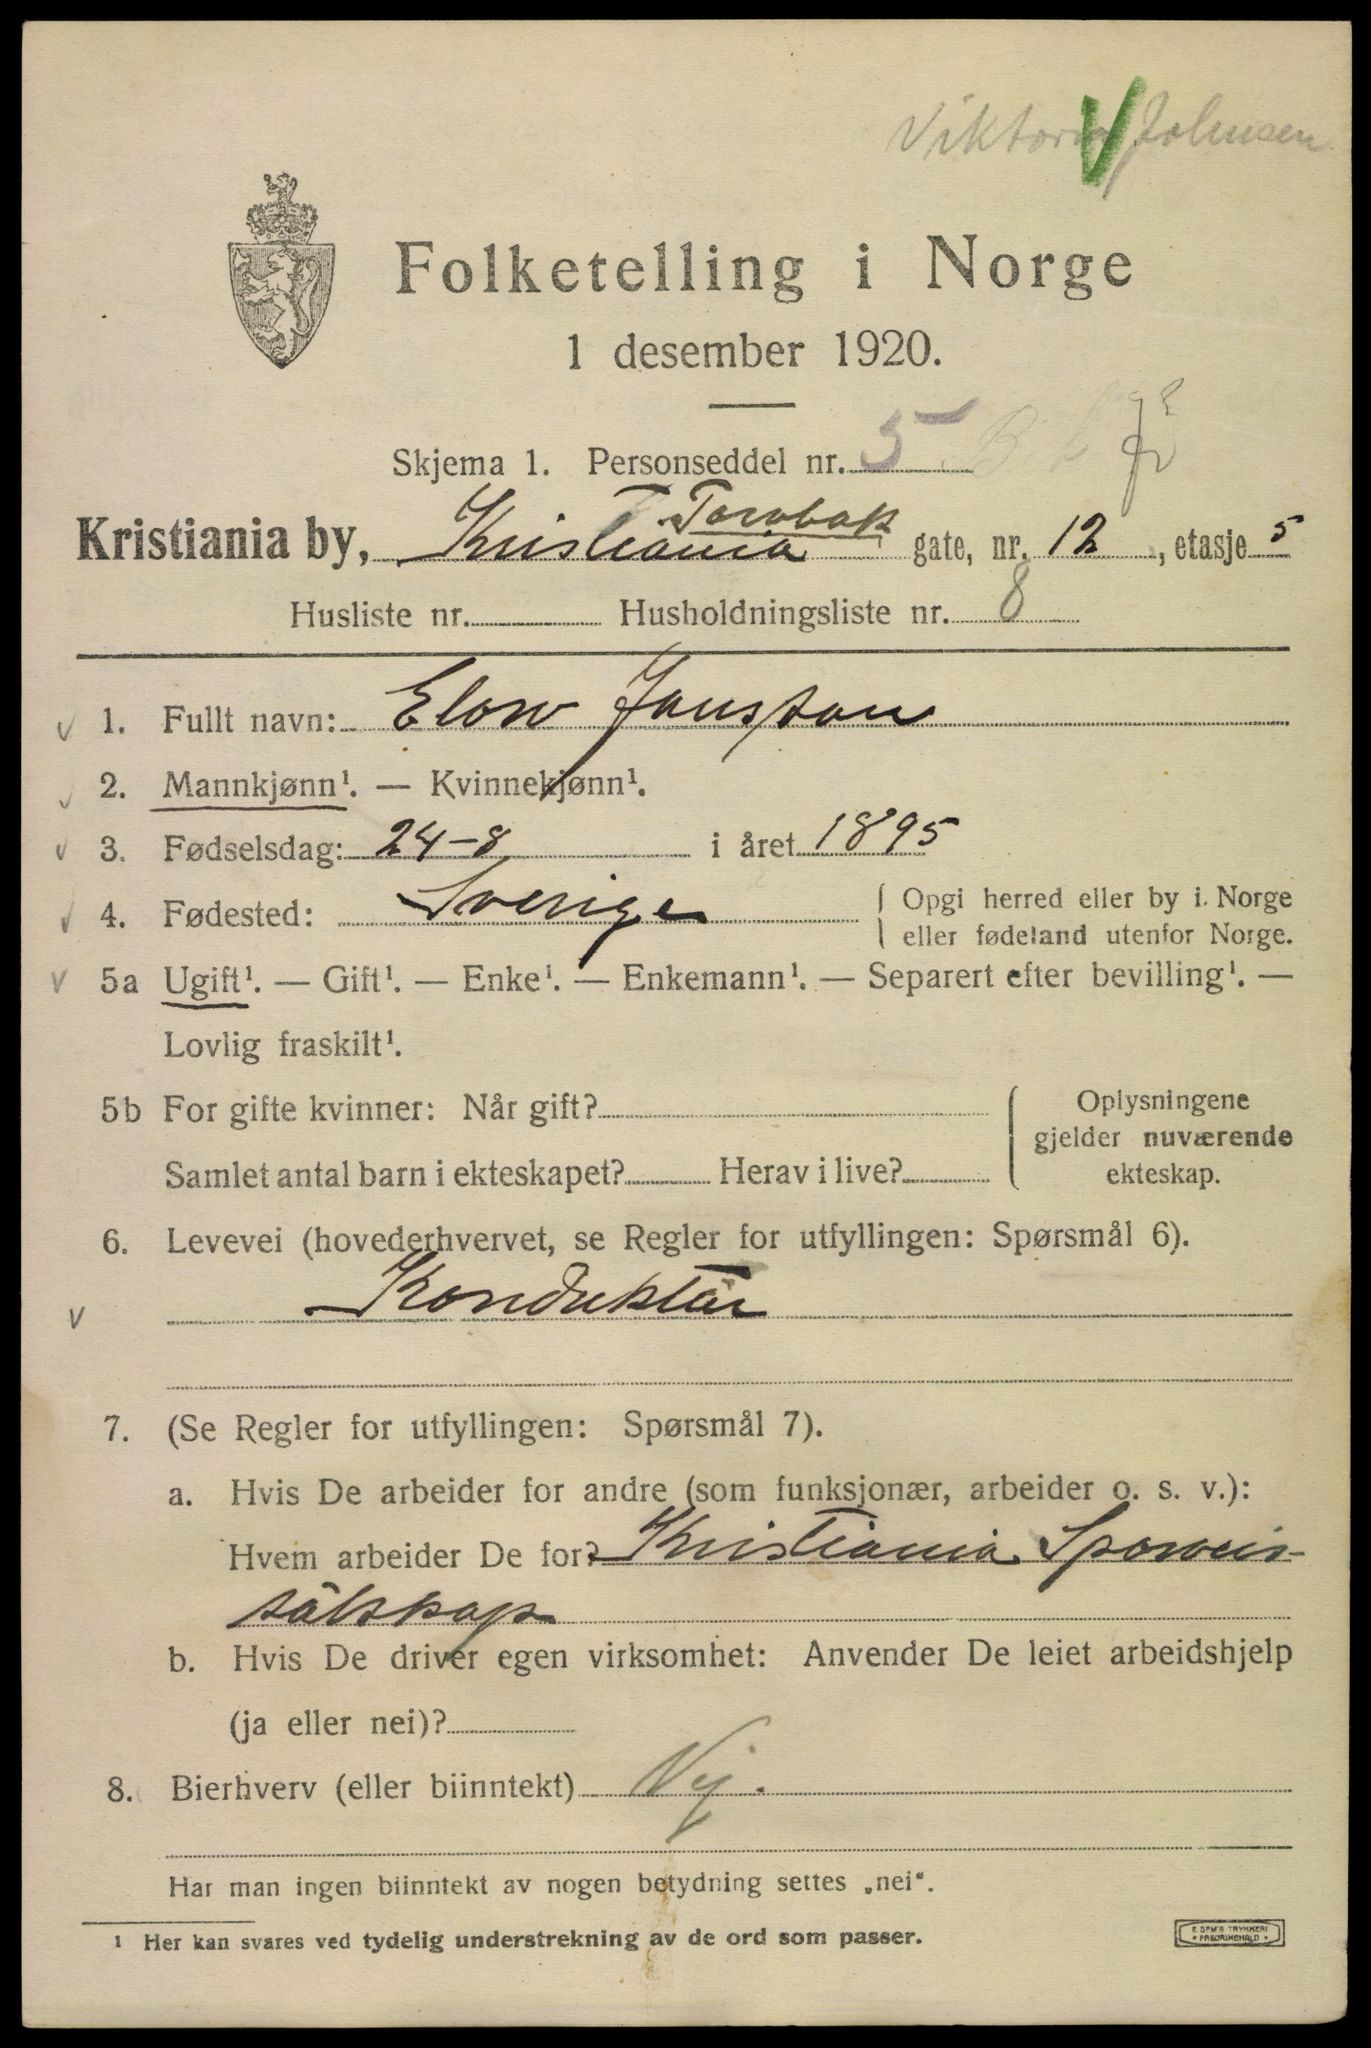 Viktoria Johnsen
Folketelling i Norge
1 desember 1920.
Skjema 1. Personseddel nr. 5
Torvbak
Kristiania by, Kristiania gate, nr. 12, etasje 5
Husliste nr. Husholdningsliste nr. 8
1. Fullt navn: Elow Jonsson
2. Mannkjønn¹. — Kvinnekjønn¹.
3. Fødselsdag: 24-8 i året 1895
4. Fødested: Sverige Opgi herred eller by i Norge
eller fødeland utenfor Norge.
5a Ugift¹. — Gift¹. — Enke¹. — Enkemann¹. — Separert efter bevilling¹. —
Lovlig fraskilt¹.
5b For gifte kvinner: Når gift? Oplysningene
gjelder nuværende
Samlet antal barn i ekteskapet? Herav i live? ekteskap.
6. Levevei (hovederhvervet, se Regler for utfyllingen: Spørsmål 6).
Konduktär
7. (Se Regler for utfyllingen: Spørsmål 7).
a. Hvis De arbeider for andre (som funksjonær, arbeider o. s. v.):
Hvem arbeider De for? Kristiania Sporveis-
sälskap
b. Hvis De driver egen virksomhet: Anvender De leiet arbeidshjelp
(ja eller nei)?
8. Bierhverv (eller biinntekt) Nej.
Har man ingen biinntekt av nogen betydning settes „nei“.
¹ Her kan svares ved tydelig understrekning av de ord som passer.
E. SEM'S TRYKKERI
FREDRIKSHALD